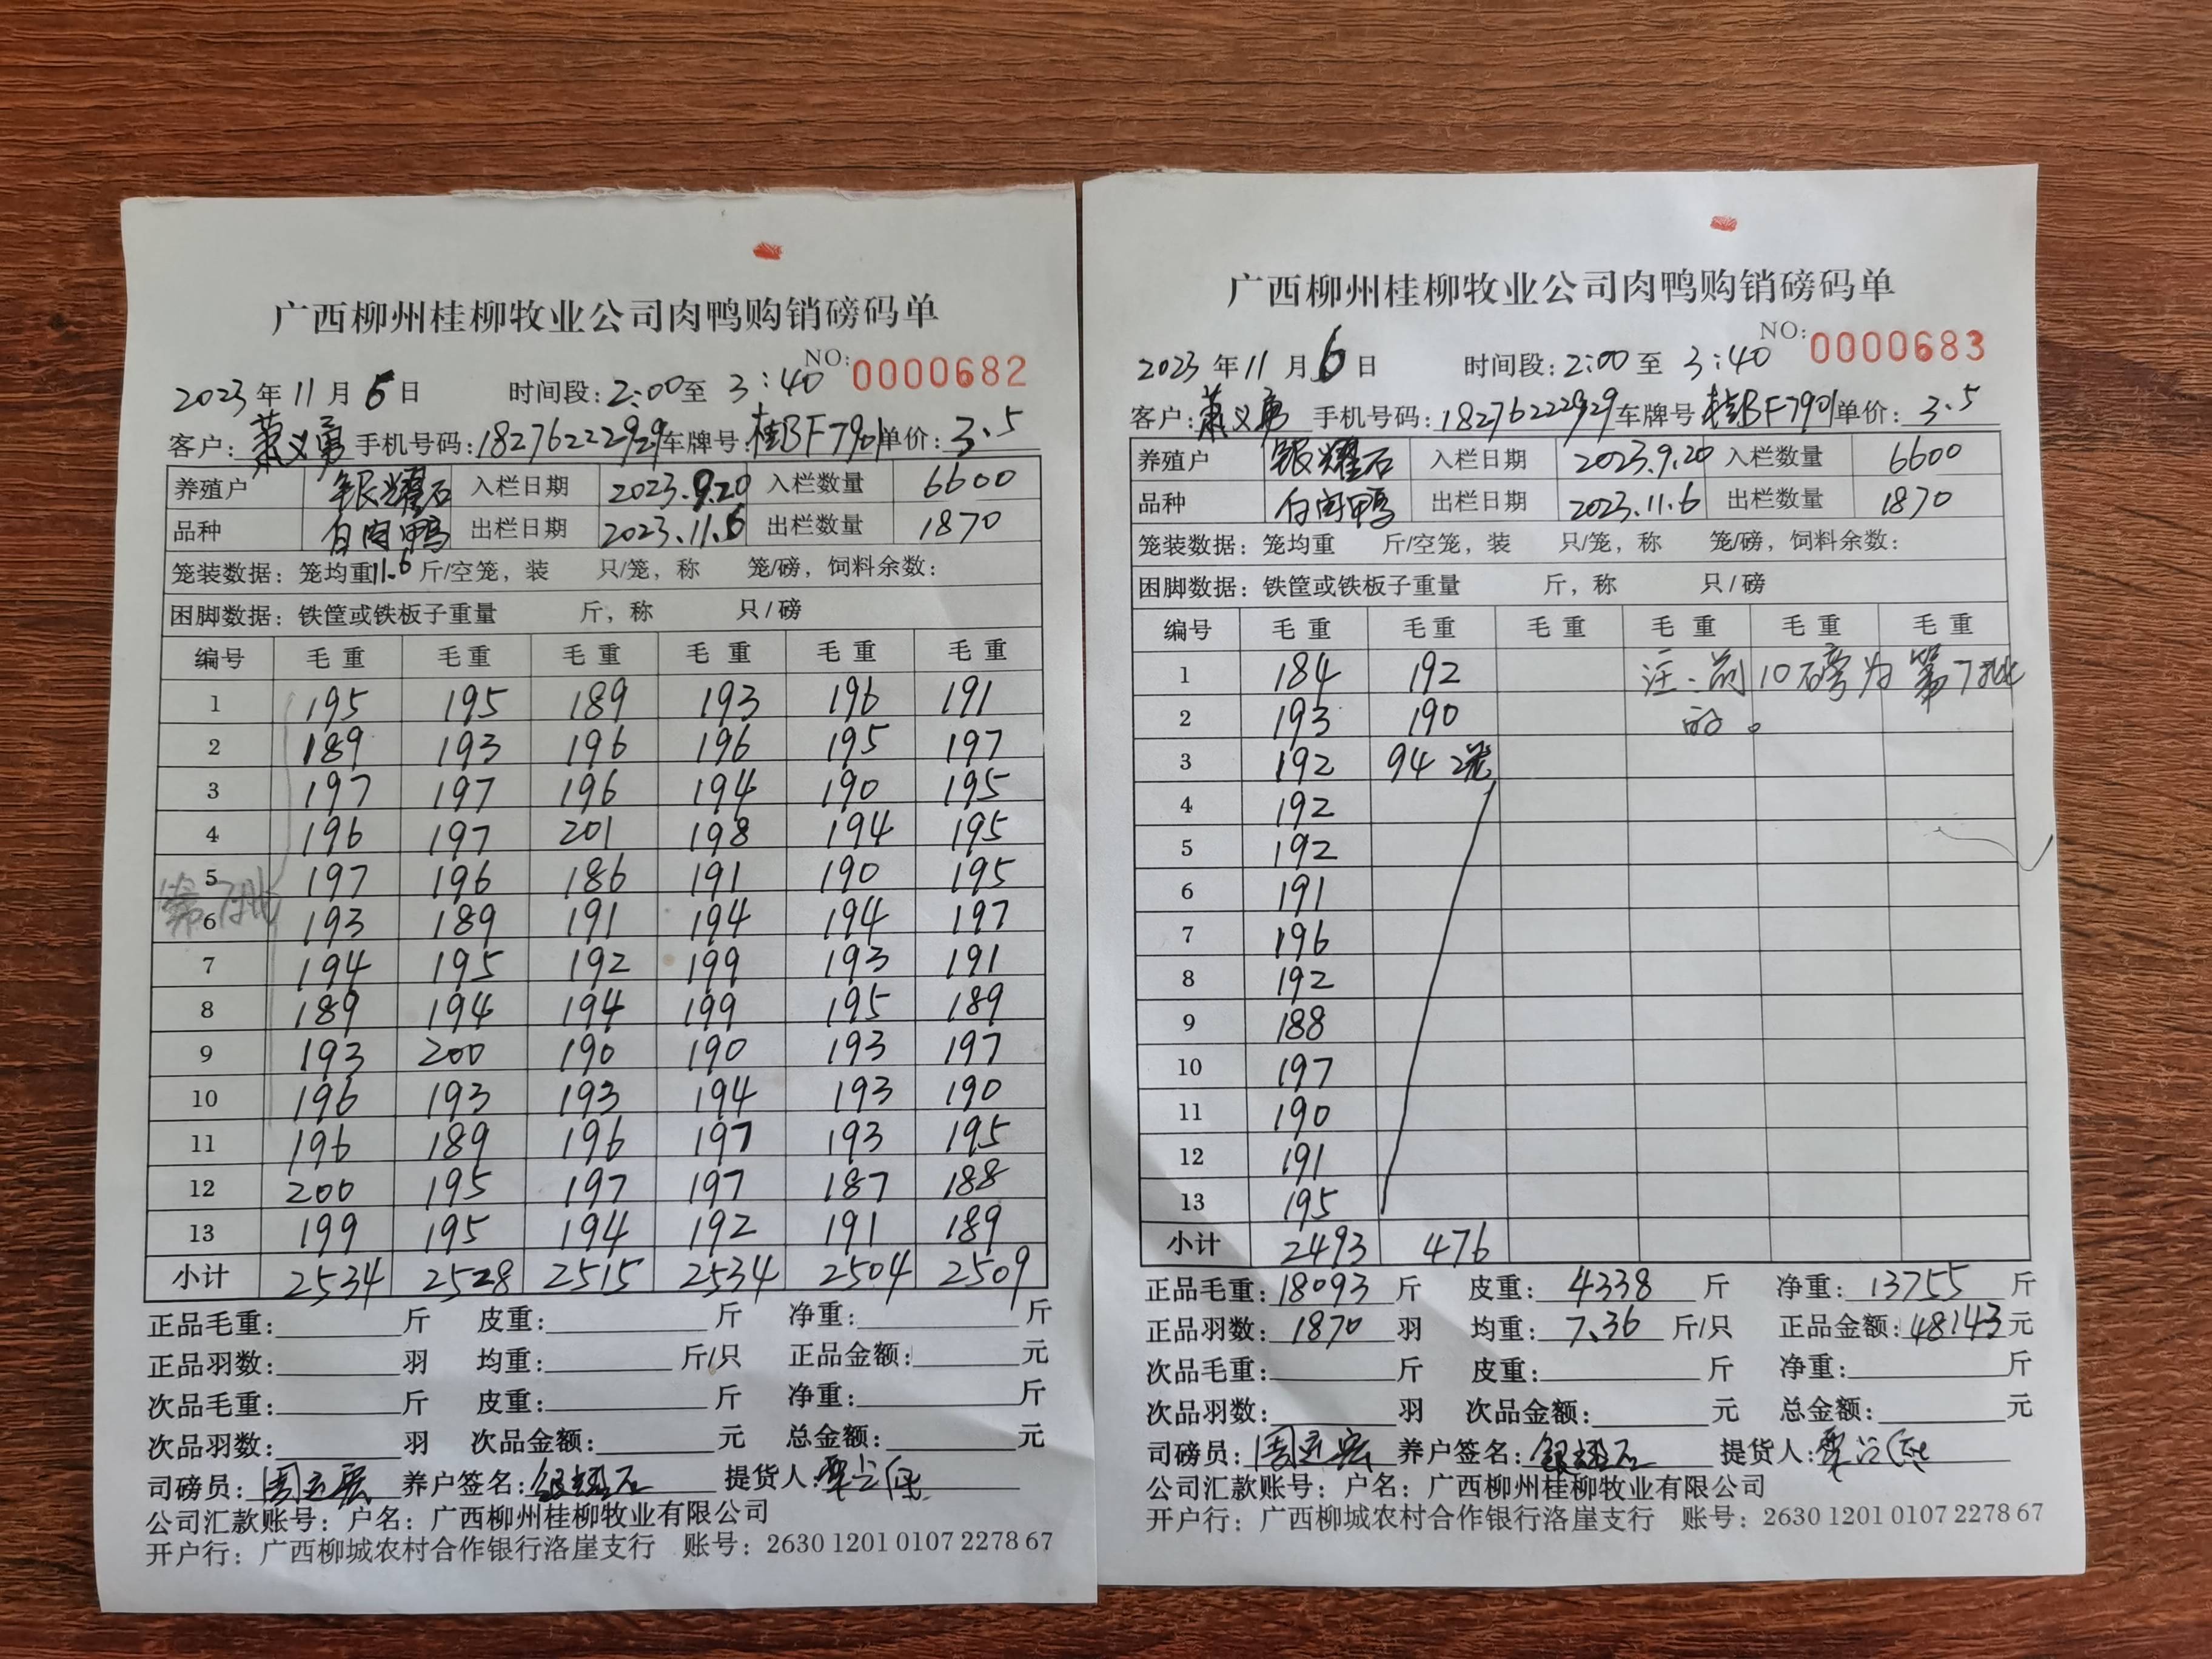 广西柳州桂柳牧业公司肉鸭购销磅码单
NO: 0000682
2023年11月6日 时间段:2:00至3:40
客户:萧义勇 手机号码:18276222929 车牌号:桂BF7901 单价:3.5
养殖户 银耀石 入栏日期 2023.9.20 入栏数量 6600
品种 白肉鸭 出栏日期 2023.11.6 出栏数量 1870
笼装数据:笼均重11.6斤/空笼,装 只/笼,称 笼/磅,饲料余数:
困脚数据:铁筐或铁板子重量 斤,称 只/磅
编号 毛重 毛重 毛重 毛重 毛重 毛重
1 195 195 189 193 196 191
2 189 193 196 196 195 197
3 197 197 196 194 190 195
4 196 197 201 198 194 195
5 197 196 186 191 190 195
第7批
6 193 189 191 194 194 197
7 194 195 192 199 193 191
8 189 194 194 199 195 189
9 193 200 190 190 193 197
10 196 193 193 194 193 190
11 196 189 196 197 193 195
12 200 195 197 197 187 188
13 199 195 194 192 191 189
小计 2534 2528 2515 2534 2504 2509
正品毛重: 斤 皮重: 斤 净重: 斤
正品羽数: 羽 均重: 斤/只 正品金额: 元
次品毛重: 斤 皮重: 斤 净重: 斤
次品羽数: 羽 次品金额: 元 总金额: 元
司磅员: 养户签名:银耀石 提货人:
公司汇款账号:户名:广西柳州桂柳牧业有限公司
开户行:广西柳城农村合作银行洛崖支行 账号:2630 1201 0107 2278 67
广西柳州桂柳牧业公司肉鸭购销磅码单
NO: 0000683
2023年11月6日 时间段:2:00至3:40
客户:萧义勇 手机号码:18276222929 车牌号 桂BF7901 单价:3.5
养殖户 银耀石 入栏日期 2023.9.20 入栏数量 6600
品种 白肉鸭 出栏日期 2023.11.6 出栏数量 1870
笼装数据:笼均重 斤/空笼,装 只/笼,称 笼/磅,饲料余数:
困脚数据:铁筐或铁板子重量 斤,称 只/磅
编号 毛重 毛重 毛重 毛重 毛重 毛重
1 184 192 注:前10磅为第7批
2 193 190 的。
3 192 94 2笼
4 192
5 192
6 191
7 196
8 192
9 188
10 197
11 190
12 191
13 195
小计 2493 476
正品毛重:18093斤 皮重:4338斤 净重:13755斤
正品羽数:1870羽 均重:7.36斤/只 正品金额:48143元
次品毛重: 斤 皮重: 斤 净重: 斤
次品羽数: 羽 次品金额: 元 总金额: 元
司磅员: 养户签名:银耀石 提货人:
公司汇款账号:户名:广西柳州桂柳牧业有限公司
开户行:广西柳城农村合作银行洛崖支行 账号:2630 1201 0107 2278 67